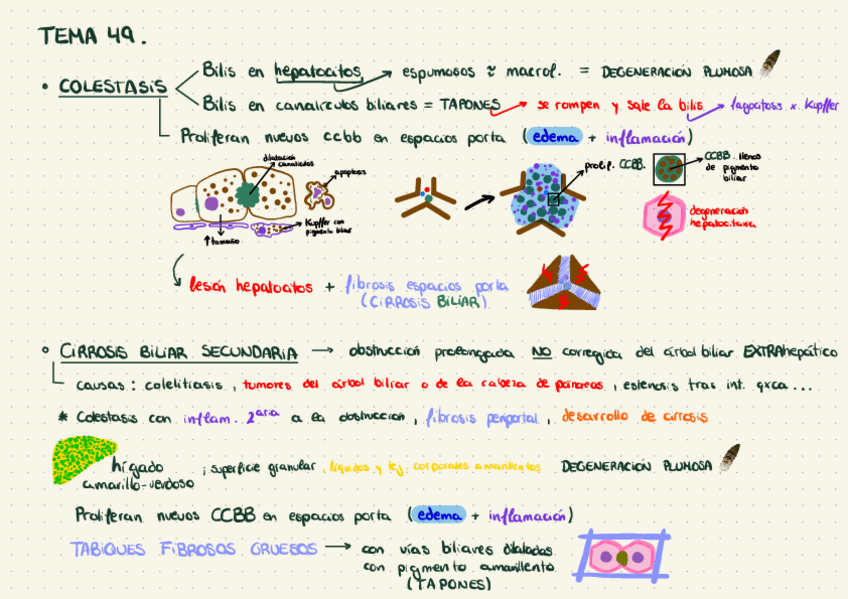 TEMA 49.
• COLESTASIS
Bilis en hepatocitos → espumosos ≈ macrof. = DEGENERACIÓN PLUMOSA
Bilis en canalículos biliares = TAPONES → se rompen y sale la bilis → fagocitosis x Kupffer
Proliferan nuevos ccbb en espacios porta (edema + inflamación)
dilatación canalículos
apoptosis
↑ tamaño
Kupffer con pigmento biliar
prolif. CCBB.
CCBB llenos de pigmento biliar
degeneración hepatocitaria
lesión hepatocitos + fibrosis espacios porta
(CIRROSIS BILIAR)
• CIRROSIS BILIAR SECUNDARIA → obstrucción prolongada NO corregida del árbol biliar EXTRAhepático
causas: colelitiasis, tumores del árbol biliar o de la cabeza de páncreas, estenosis tras int. qxca...
* Colestasis con inflam. 2aria a la obstrucción, fibrosis periportal, desarrollo de cirrosis
hígado amarillo-verdoso ; superficie granular, líquidos y tej. corporales amarillentos DEGENERACIÓN PLUMOSA
Proliferan nuevos CCBB en espacios porta (edema + inflamación)
TABIQUES FIBROSOS GRUESOS → con vías biliares dilatadas
con pigmento amarillento
(TAPONES)